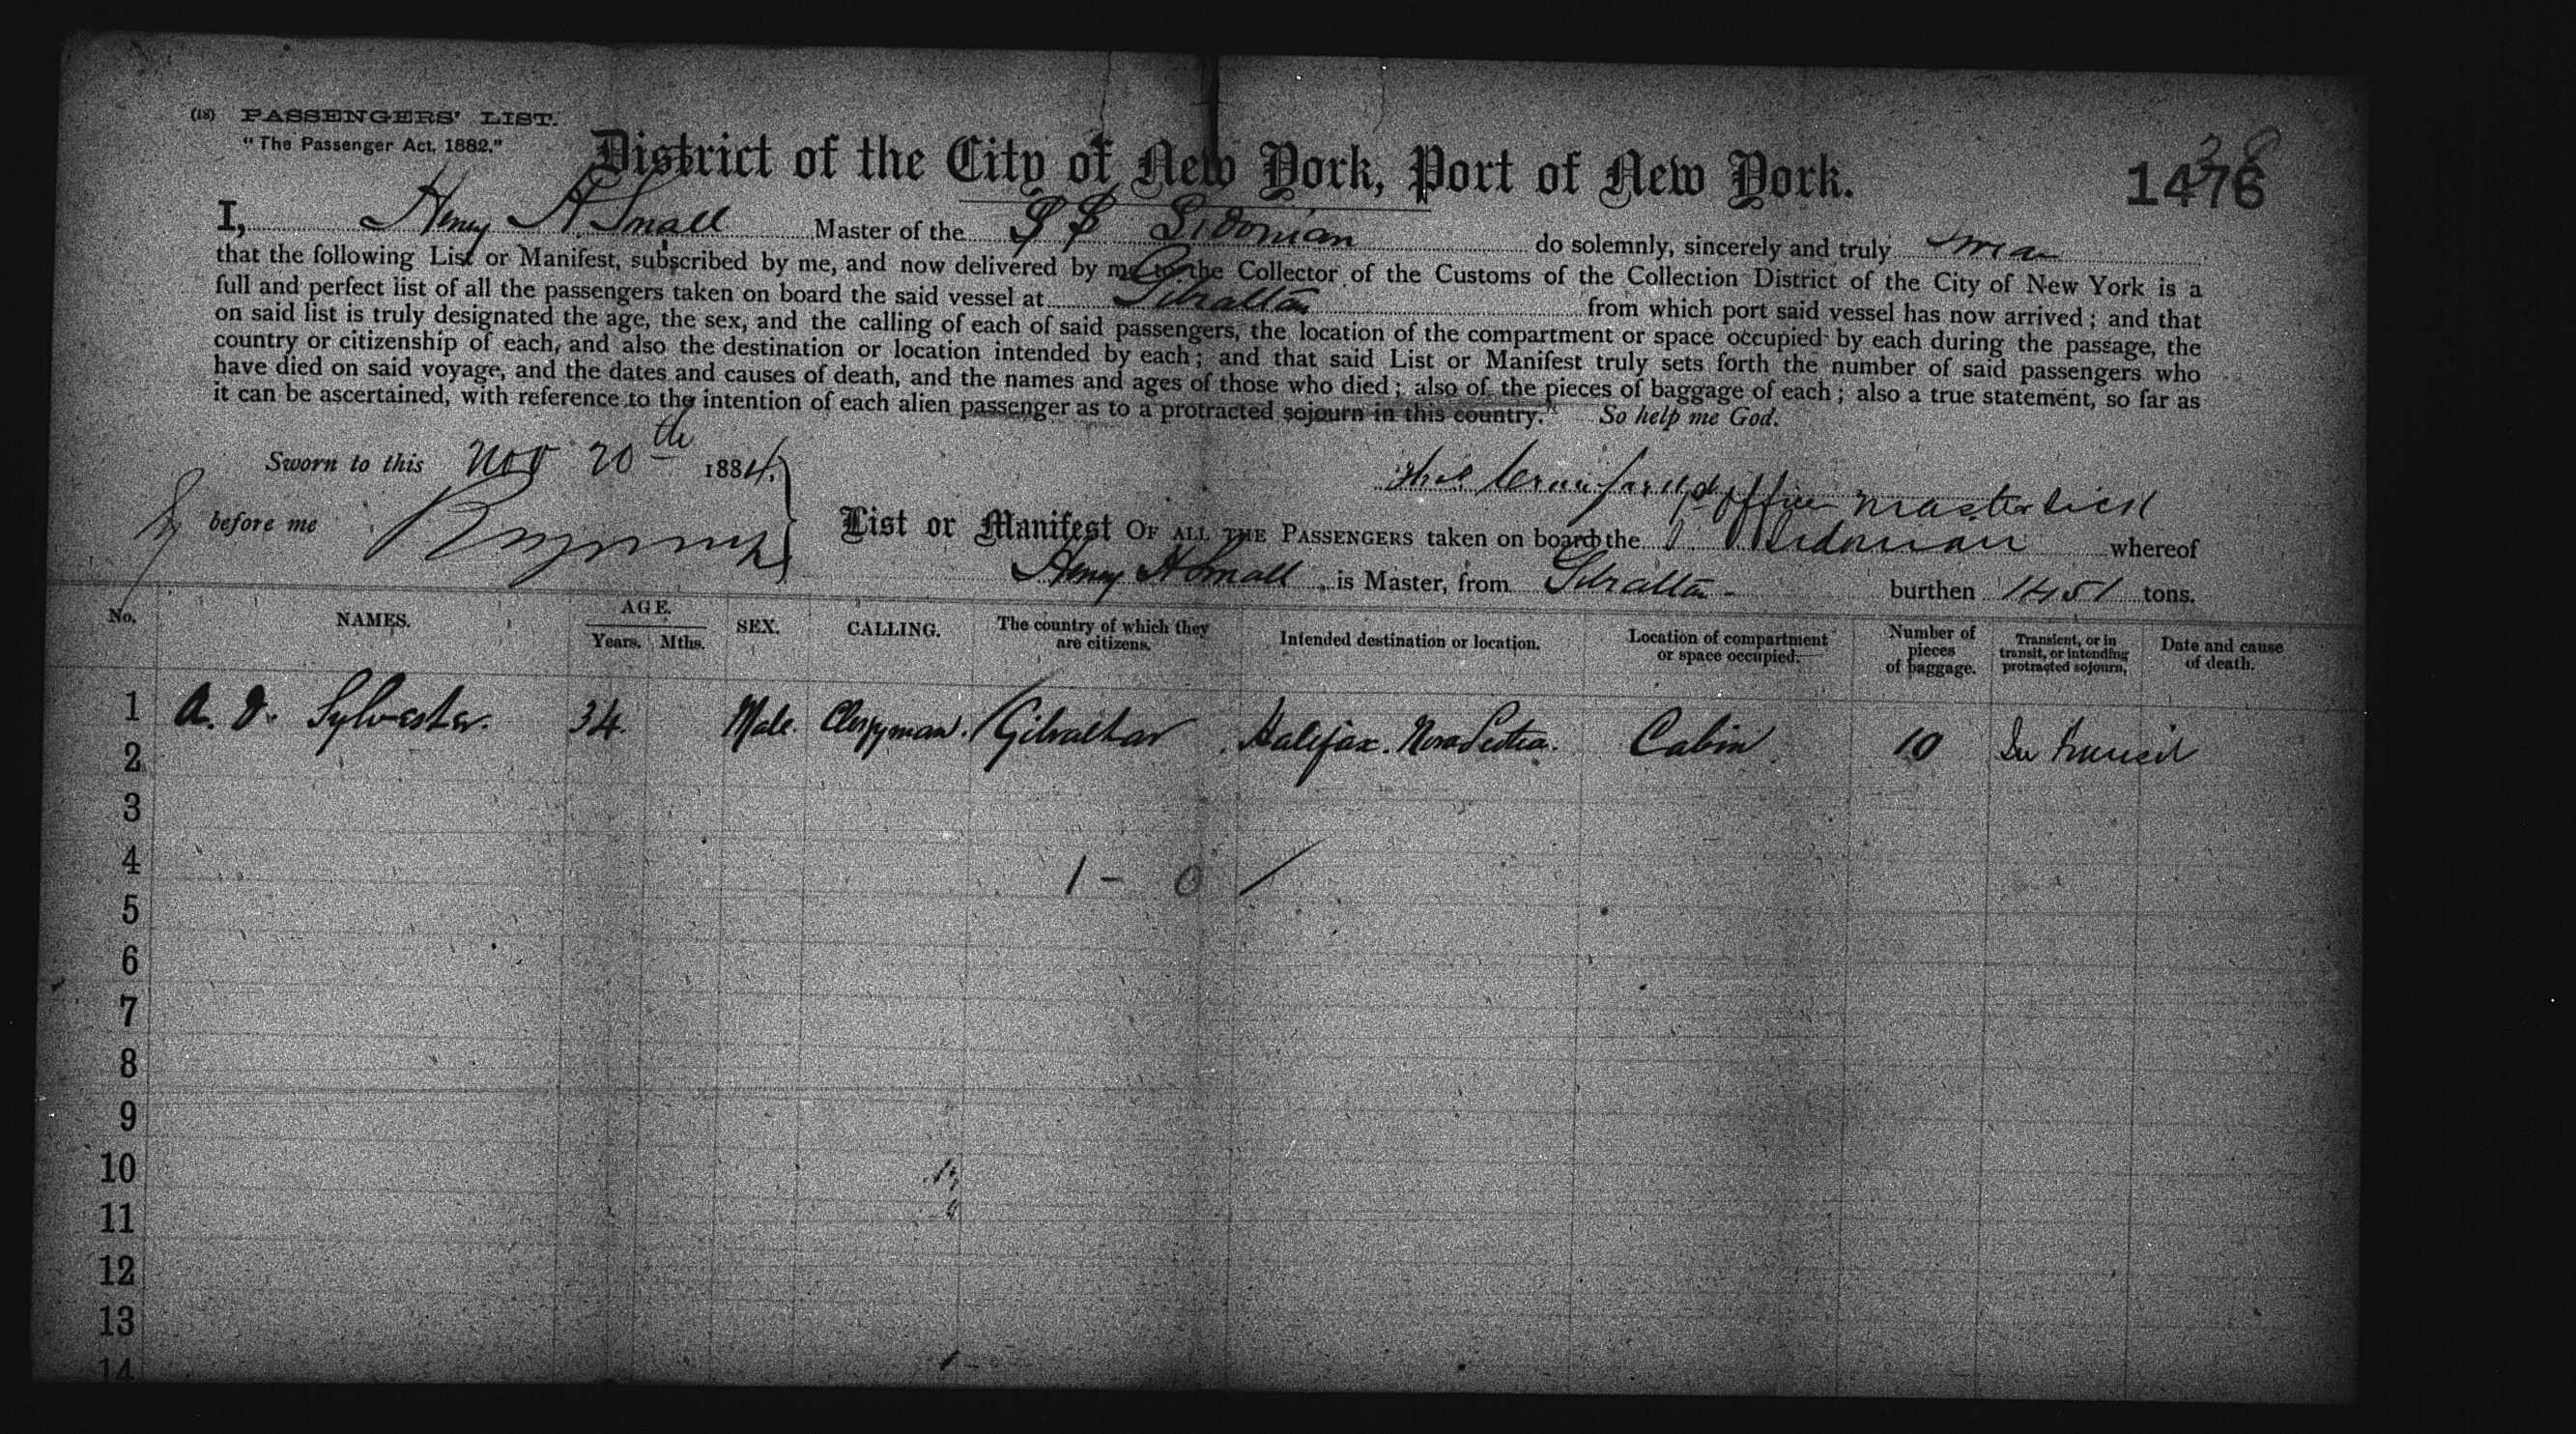 (18) PASSENGERS' LIST.
"The Passenger Act, 1882."
District of the City of New York, Port of New York.
38
1476
I, Henry A. Small Master of the SS Sidonian do solemnly, sincerely and truly swear
that the following List or Manifest, subscribed by me, and now delivered by me to the Collector of the Customs of the Collection District of the City of New York is a
full and perfect list of all the passengers taken on board the said vessel at Gibraltar from which port said vessel has now arrived; and that
on said list is truly designated the age, the sex, and the calling of each of said passengers, the location of the compartment or space occupied by each during the passage, the
country or citizenship of each, and also the destination or location intended by each; and that said List or Manifest truly sets forth the number of said passengers who
have died on said voyage, and the dates and causes of death, and the names and ages of those who died; also of the pieces of baggage of each; also a true statement, so far as
it can be ascertained, with reference to the intention of each alien passenger as to a protracted sojourn in this country. So help me God.
Sworn to this Nov 20th 1884.
before me
officer master sick
List or Manifest OF ALL THE PASSENGERS taken on board the Sidonian whereof
Henry A Small is Master, from Gibraltar burthen 1451 tons.
No. NAMES. AGE. Years. Mths. SEX. CALLING. The country of which they are citizens. Intended destination or location. Location of compartment or space occupied. Number of pieces of baggage. Transient, or in transit, or intending protracted sojourn. Date and cause of death.
1 A. Sylvester. 34. Male. Clergyman. Gibraltar Halifax. Nova Scotia. Cabin 10 In transit
2
3
4
1 - 0 /
5
6
7
8
9
10
11
12
13
14